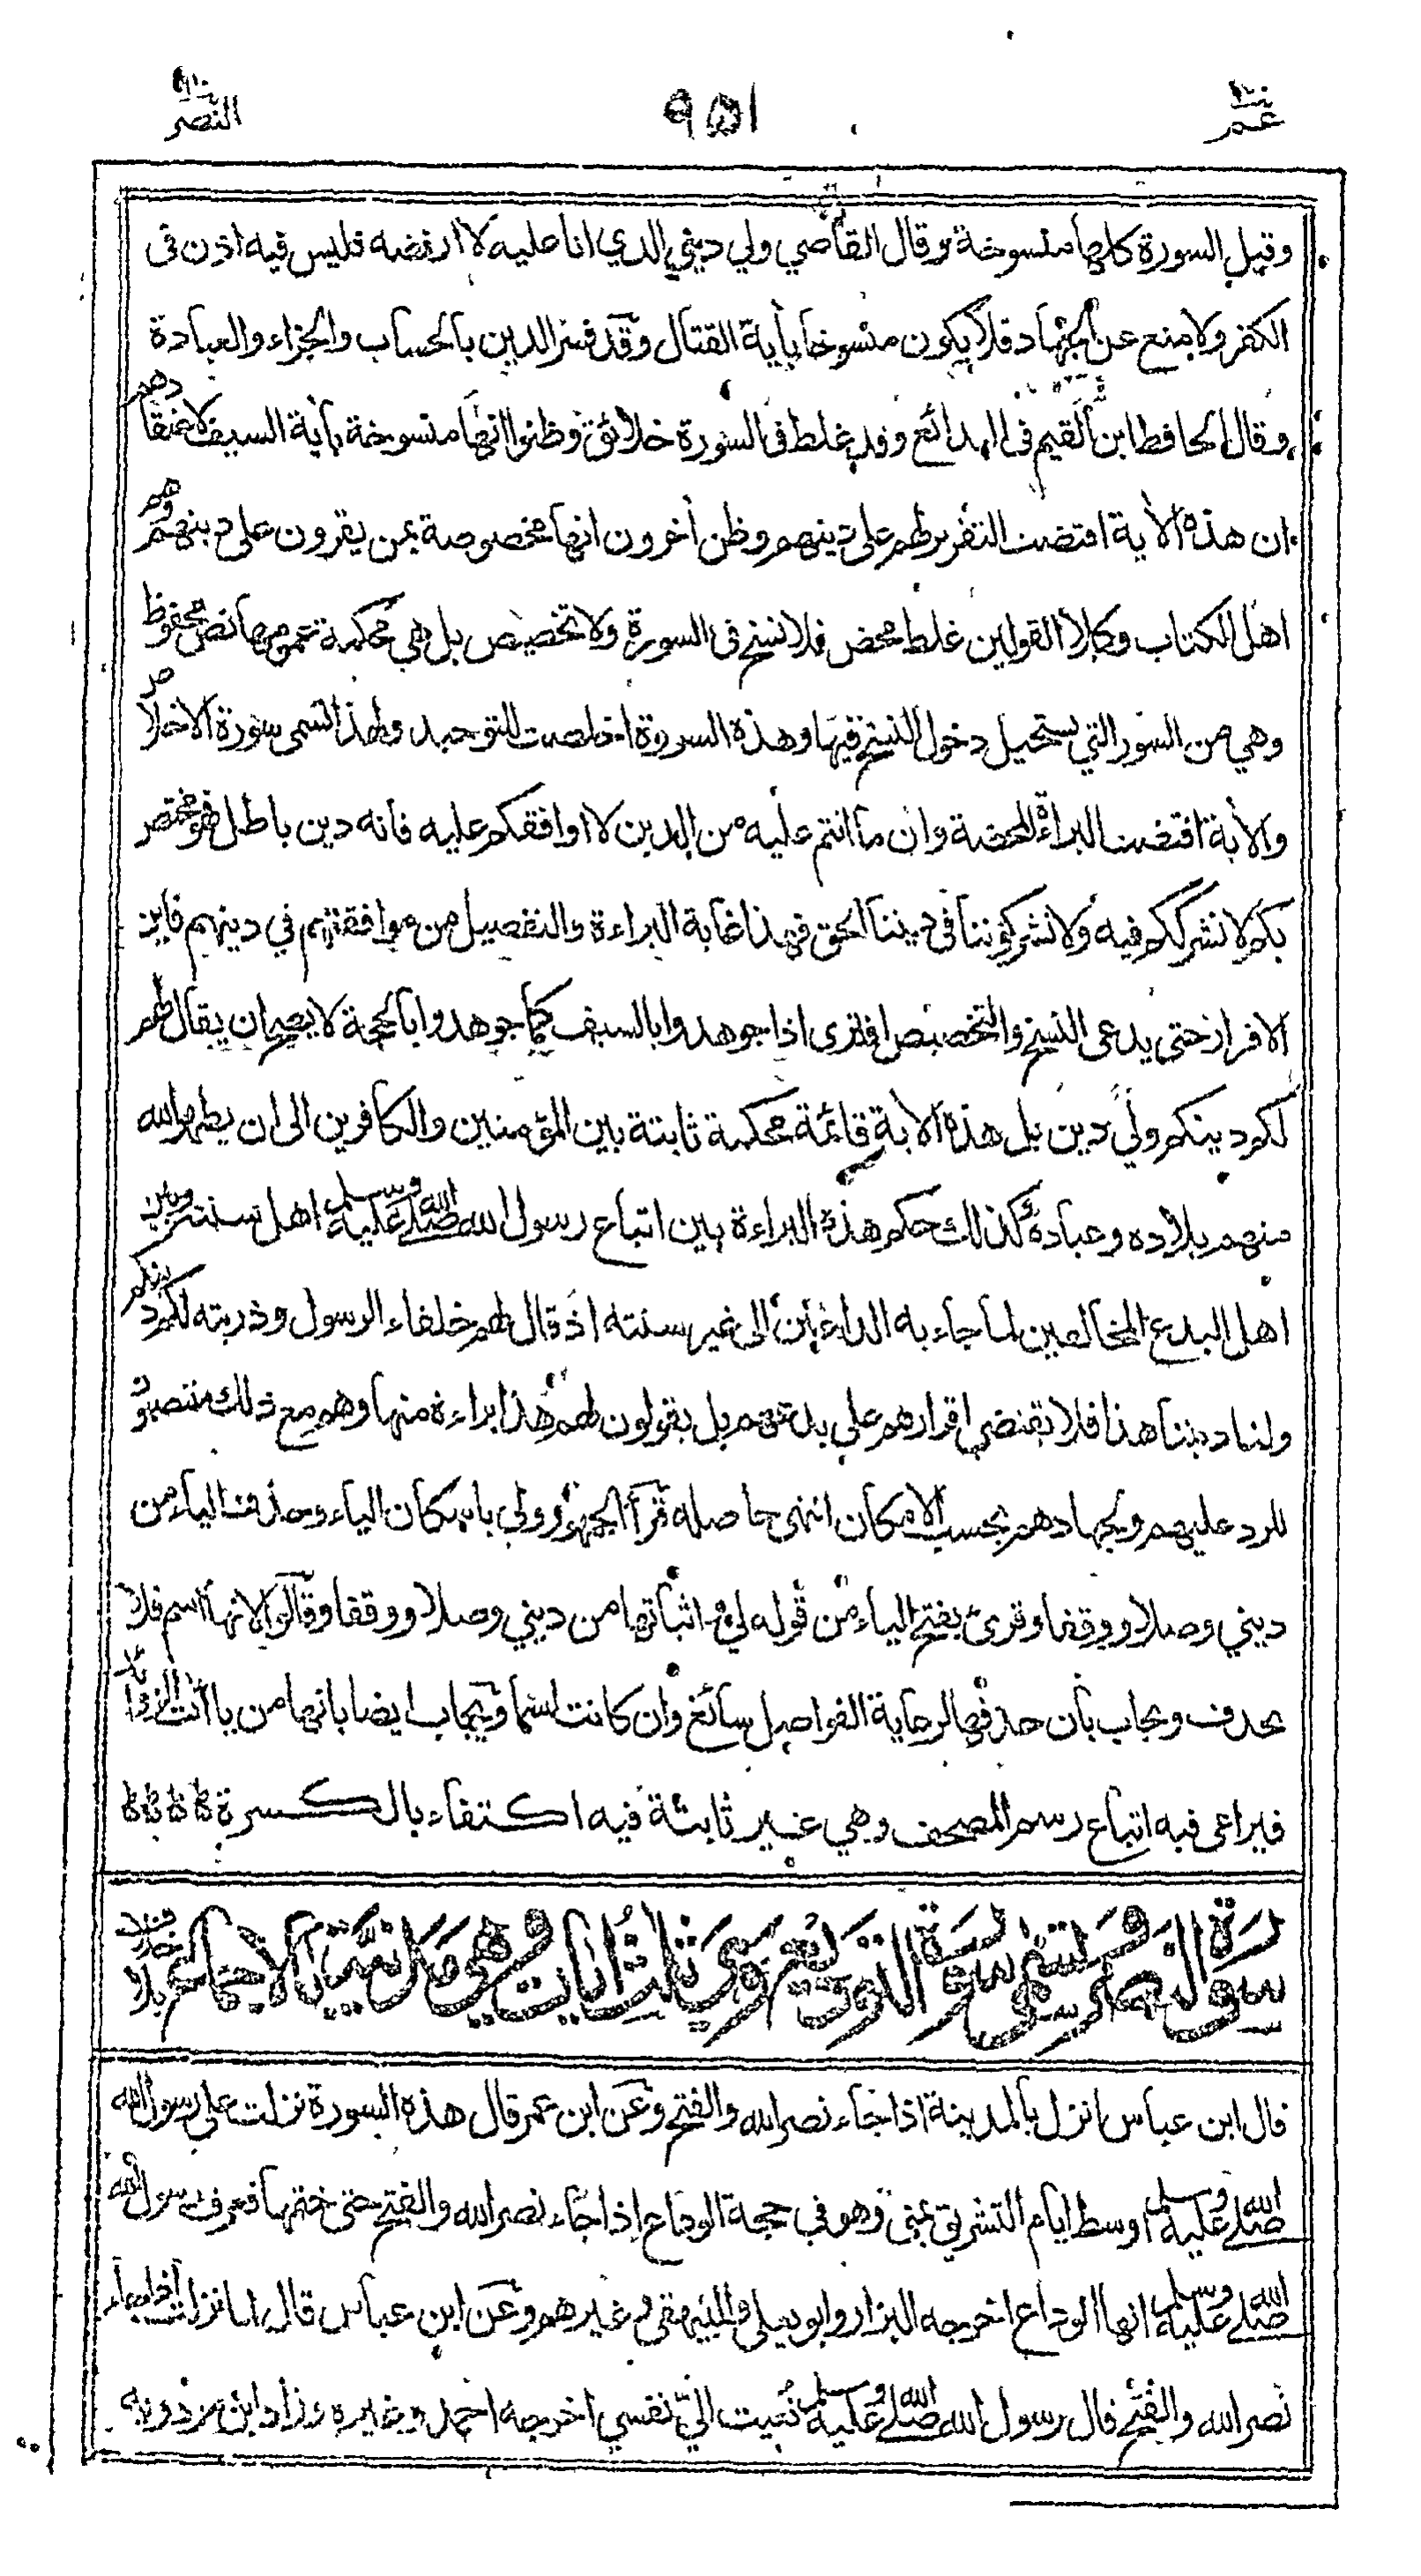 عم
٩٥١
النصر
وقيل السورة كلها منسوخة وقال القاضي ولي ديني الذي انا عليه لا ارفضه فليس فيه اذن في
الكفر ولا منع عن الجهاد فلا يكون منسوخا بأية القتال وقد فسر الدين بالحساب والجزاء والعبادة
وقال الحافظ ابن القيم في البدائع وقد غلط في السورة خلائق وظنوا انها منسوخة بأية السيف لاعتقادهم
ان هذه الأية اقتضت التقرير لهم على دينهم وظن أخرون انها مخصوصة بمن يقرون على دينهم وهم
اهل الكتاب وكلا القولين غلط محض فلا نسخ في السورة ولا تخصيص بل هي محكمة عمومها نص محفوظ
وهي من السور التي يستحيل دخول النسخ فيها وهذه السورة اخلصت للتوحيد ولهذا تسمى سورة الاخلاص
والأية اقتضت البراءة المحضة وان ما انتم عليه من الدين لا اوافقكم عليه فانه دين باطل فهو مختص
بكم لا نشرككم فيه ولا تشركوننا في ديننا الحق فهذا غاية البراءة والتفصيل من موافقتهم في دينهم فاين
الاقرار حتى يدعى النسخ والتخصيص افترى اذا جوهدوا بالسيف كما جوهدوا بالحجة لا يصح ان يقال لهم
لكم دينكم ولي دين بل هذه الأية قائمة محكمة ثابتة بين المؤمنين والكافرين الى ان يطهر الله
منهم بلاده وعباده كذلك حكم هذه البراءة بين اتباع رسول الله صلى الله عليه وسلم اهل سنته وبين
اهل البدع المخالفين لما جاء به الداعين الى غير سنته اذ قال لهم خلفاء الرسول وذريته لكم دينكم
ولنا ديننا هذا فلا يقتضي اقرارهم على بدعتهم بل يقولون لهم هذا براءة منها وهم مع ذلك منتصبون
للرد عليهم ولجهادهم بحسب الامكان انتهى حاصله قرأ الجمهور ولي باسكان الياء وحذف الياء من
ديني وصلا ووقفا وقرئ بفتح الياء من قوله لي و اثباتها من ديني وصلا ووقفا وقالوا لانها اسم فلا
يحذف ويجاب بأن حذفها لرعاية الفواصل سائغ وان كانت اسما ويجاب ايضا بانها من ياأت الزوائد
فيراعى فيه اتباع رسم المصحف وهي غير ثابتة فيه اكتفاء بالكسرة
سورة النصر وتسمى سورة التوديع وهي ثلث ايات وهي مدنية بالاجماع بلا خلاف
قال ابن عباس انزل بالمدينة اذا جاء نصر الله والفتح وعن ابن عمر قال هذه السورة نزلت على رسول الله
صلى الله عليه وسلم اوسط ايام التشريق بمنى وهو في حجة الوداع اذا جاء نصر الله والفتح حتى ختمها فعرف رسول الله
صلى الله عليه وسلم انها الوداع اخرجه البزار وابو يعلى والبيهقي وغيرهم وعن ابن عباس قال لما نزلت اذا جاء
نصر الله والفتح قال رسول الله صلى الله عليه وسلم نعيت اليّ نفسي اخرجه احمد وغيره وزاد ابن مردويه